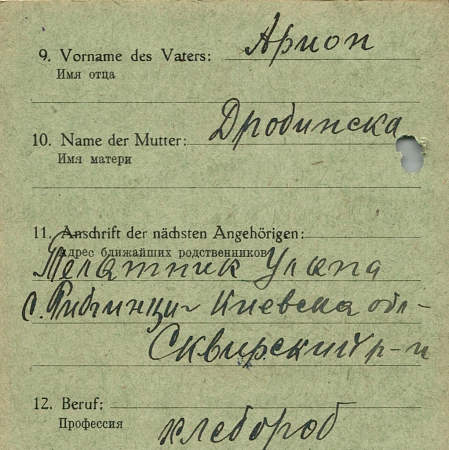 9. Vorname des Vaters: Арион
Имя отца
10. Name der Mutter: Дробинска
Имя матери
11. Anschrift der nächsten Angehörigen:
Адрес ближайших родственников
Улана
с. Киевска обл-
Сквирский р-н
12. Beruf:
Профессия хлебороб